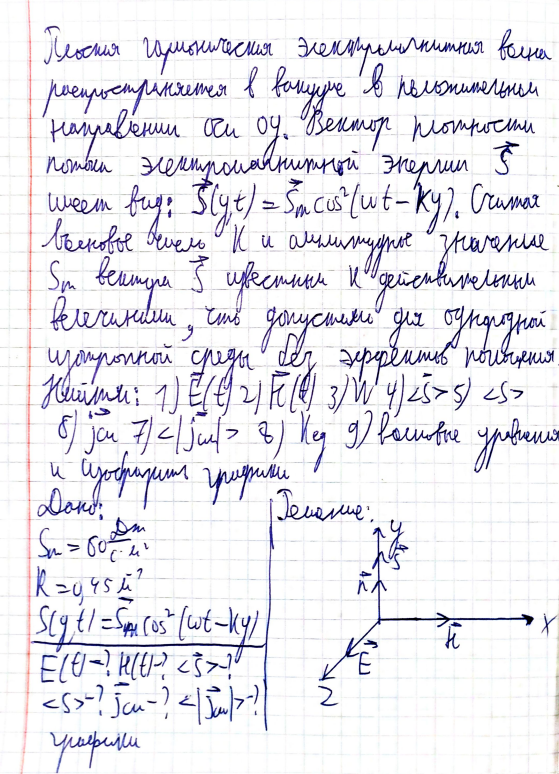 Плоская гармоническая электромагнитная волна
распространяется в вакууме в положительном
направлении оси OY. Вектор плотности
потока электромагнитной энергии S⃗
имеет вид: S⃗(y,t) = S⃗m cos²(ωt − Ky). Считая
волновое число K и амплитудное значение
Sm вектора S⃗ известными и действительными
величинами, что допустимо для однородной
изотропной среды без эффектов поглощения.
Найти: 1) E⃗(t) 2) H⃗(t) 3) W 4) <S⃗> 5) <S>
6) j⃗см 7) <|j⃗см|> 8) Kед 9) волновые уравнения
и изобразить графики
Дано:
Sm = 60 Дж/с·м²
K = 0,45 м⁻¹
S(y,t) = S⃗m cos²(ωt − Ky)
E(t) - ? H(t) - ? <S⃗> - ?
<S> - ? j⃗см - ? <|j⃗см|> - ?
графики
Решение:
y
S⃗
n⃗
x
H⃗
E⃗
Z